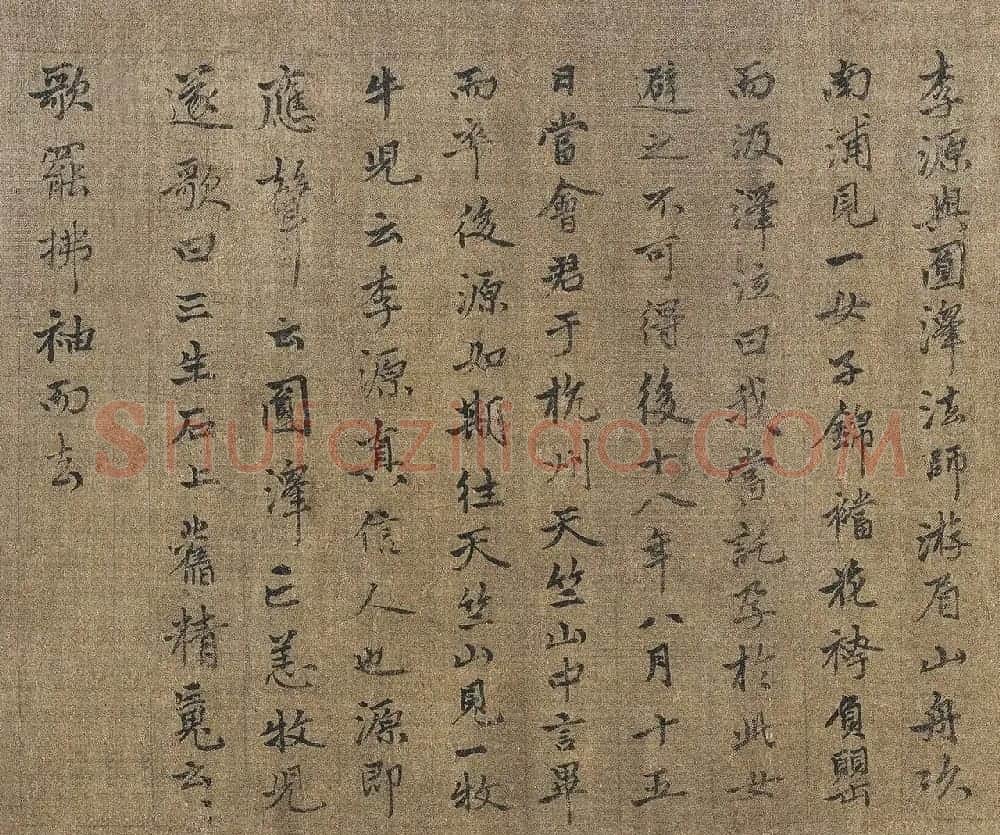 李源與圓澤法師游眉山舟次
南浦見一女子錦襠花袴負罌
而汲澤泣曰我當託孕於此女
避之不可得後十八年八月十五
日當會君于杭州天竺山中言畢
而卒後源如期往天竺山見一牧
牛児云李源真信人也源即
應聲云圓澤已恙牧児
遂歌曰三生石上舊精䰟云〻
歌罷拂袖而去
Shufaziliao.COM